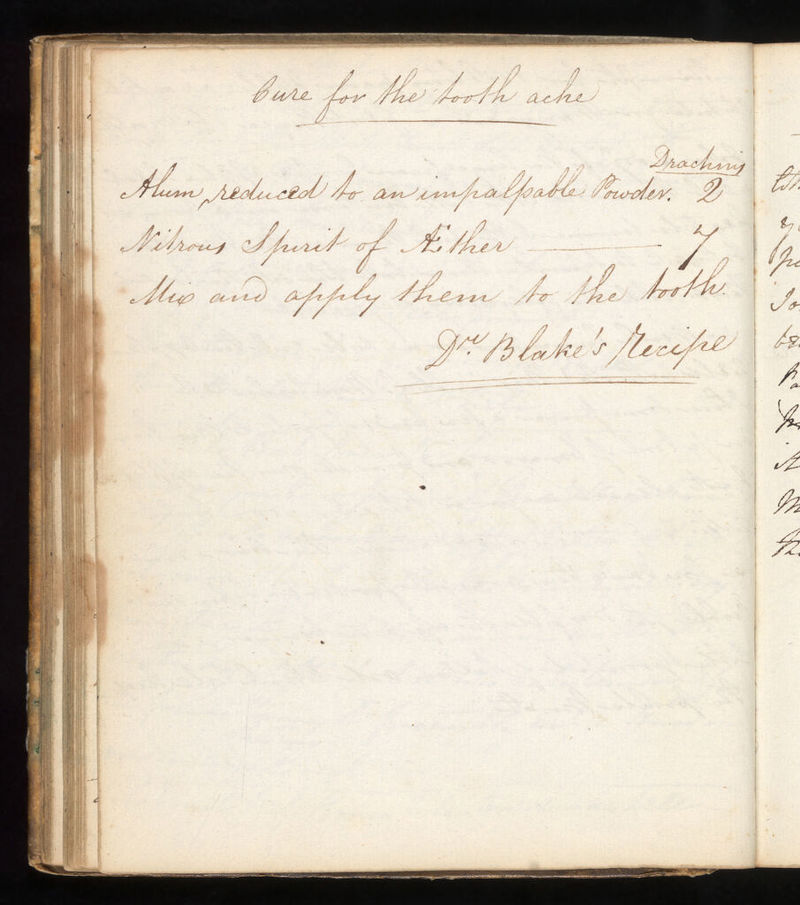 Cure for the tooth ache
Drachms
Alum reduced to an impalpable Powder. 2
Nitrous Spirit of Æther 7
Mix and apply them to the tooth.
Dr. Blake's Recipe